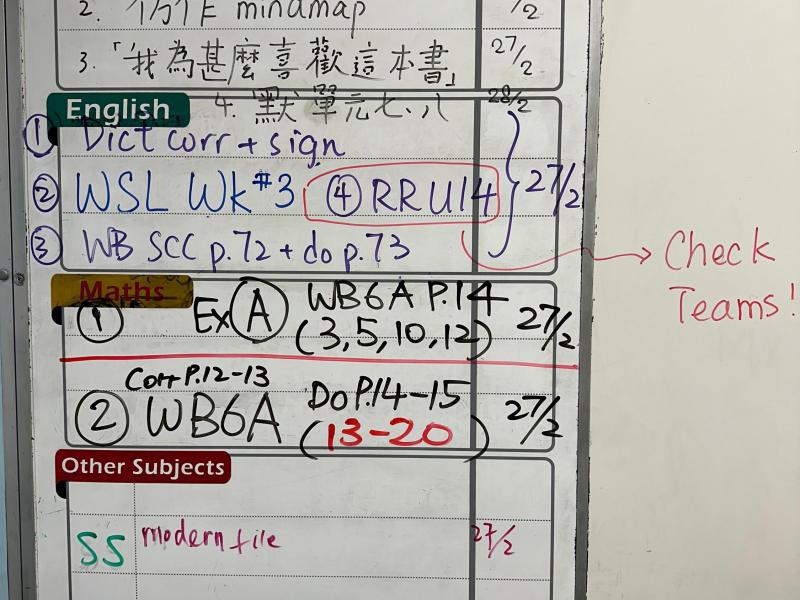 2. 仿作 mindmap /2
3. 「我為甚麼喜歡這本書」 27/2
English 4. 默 單元七、八 28/2
① Dict corr + sign
② WSL Wk#3 ④ RR U14 27/2
③ WB SCC p.72 + do p.73
Check
Teams!
Maths
① Ex Ⓐ WB6A P.14
(3,5,10,12) 27/2
Corr P.12-13
② WB6A Do P.14-15
(13-20) 27/2
Other Subjects
SS modern file 27/2